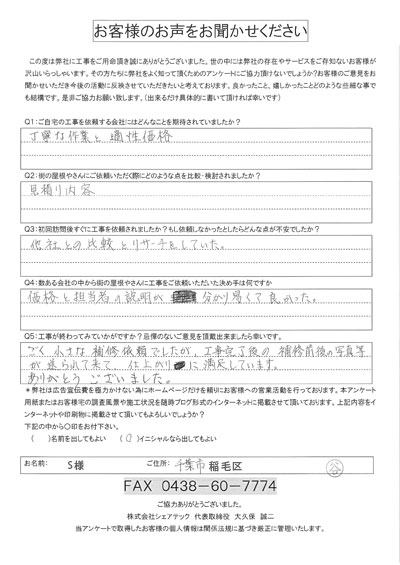 お客様のお声をお聞かせください
この度は弊社に工事をご用命頂き誠にありがとうございました。世の中には弊社の存在やサービスをご存知ないお客様が
沢山いらっしゃいます。その方たちに弊社をよく知って頂くためのアンケートにご協力頂けないでしょうか?お客様のご意見をお
聞かせいただき今後の活動に反映させていただきたいと考えております。良かったこと、嬉しかったことどのような些細な事で
も結構です。是非ご協力お願い致します。(出来るだけ具体的に書いて頂ければ幸いです)
Q1:ご自宅の工事を依頼する会社にはどんなことを期待されていましたか?
丁寧な作業と適性価格
Q2:街の屋根やさんにご依頼いただく際にどのような点を比較・検討されましたか?
見積り内容
Q3:初回訪問後すぐに工事を依頼されましたか?もし依頼しなかったとしたらどんな点が不安でしたか?
他社との比較とリサーチをしていた。
Q4:数ある会社の中から街の屋根やさんに工事をご依頼いただいた決め手は何ですか
価格と担当者の説明が分かり易くて良かった。
Q5:工事が終わってみていかがですか?忌憚のないご意見を頂戴出来ましたら幸いです。
ごく小さな補修依頼でしたが、工事完了後の補修前後の写真等
が送られて来て、仕上がりに満足しています。
ありがとうございました。
*弊社は広告宣伝費を極力かけない為にホームページだけを頼りにお客様への営業活動を行っております。本アンケート
用紙またはお客様宅の調査風景や施工状況を随時ブログ形式のインターネットに掲載させて頂いております。上記内容をイ
ンターネットや印刷物に掲載させて頂いてもよろしいでしょうか?
下記の中から〇印をお付下さい。
( )名前を出してもよい (〇)イニシャルなら出してもよい
お名前: S様 ご住所: 千葉市稲毛区
谷
FAX 0438-60-7774
ご協力ありがとうございました。
株式会社シェアテック 代表取締役 大久保 誠二
当アンケートで取得したお客様の個人情報は関係法規に基づき厳正に管理いたします。